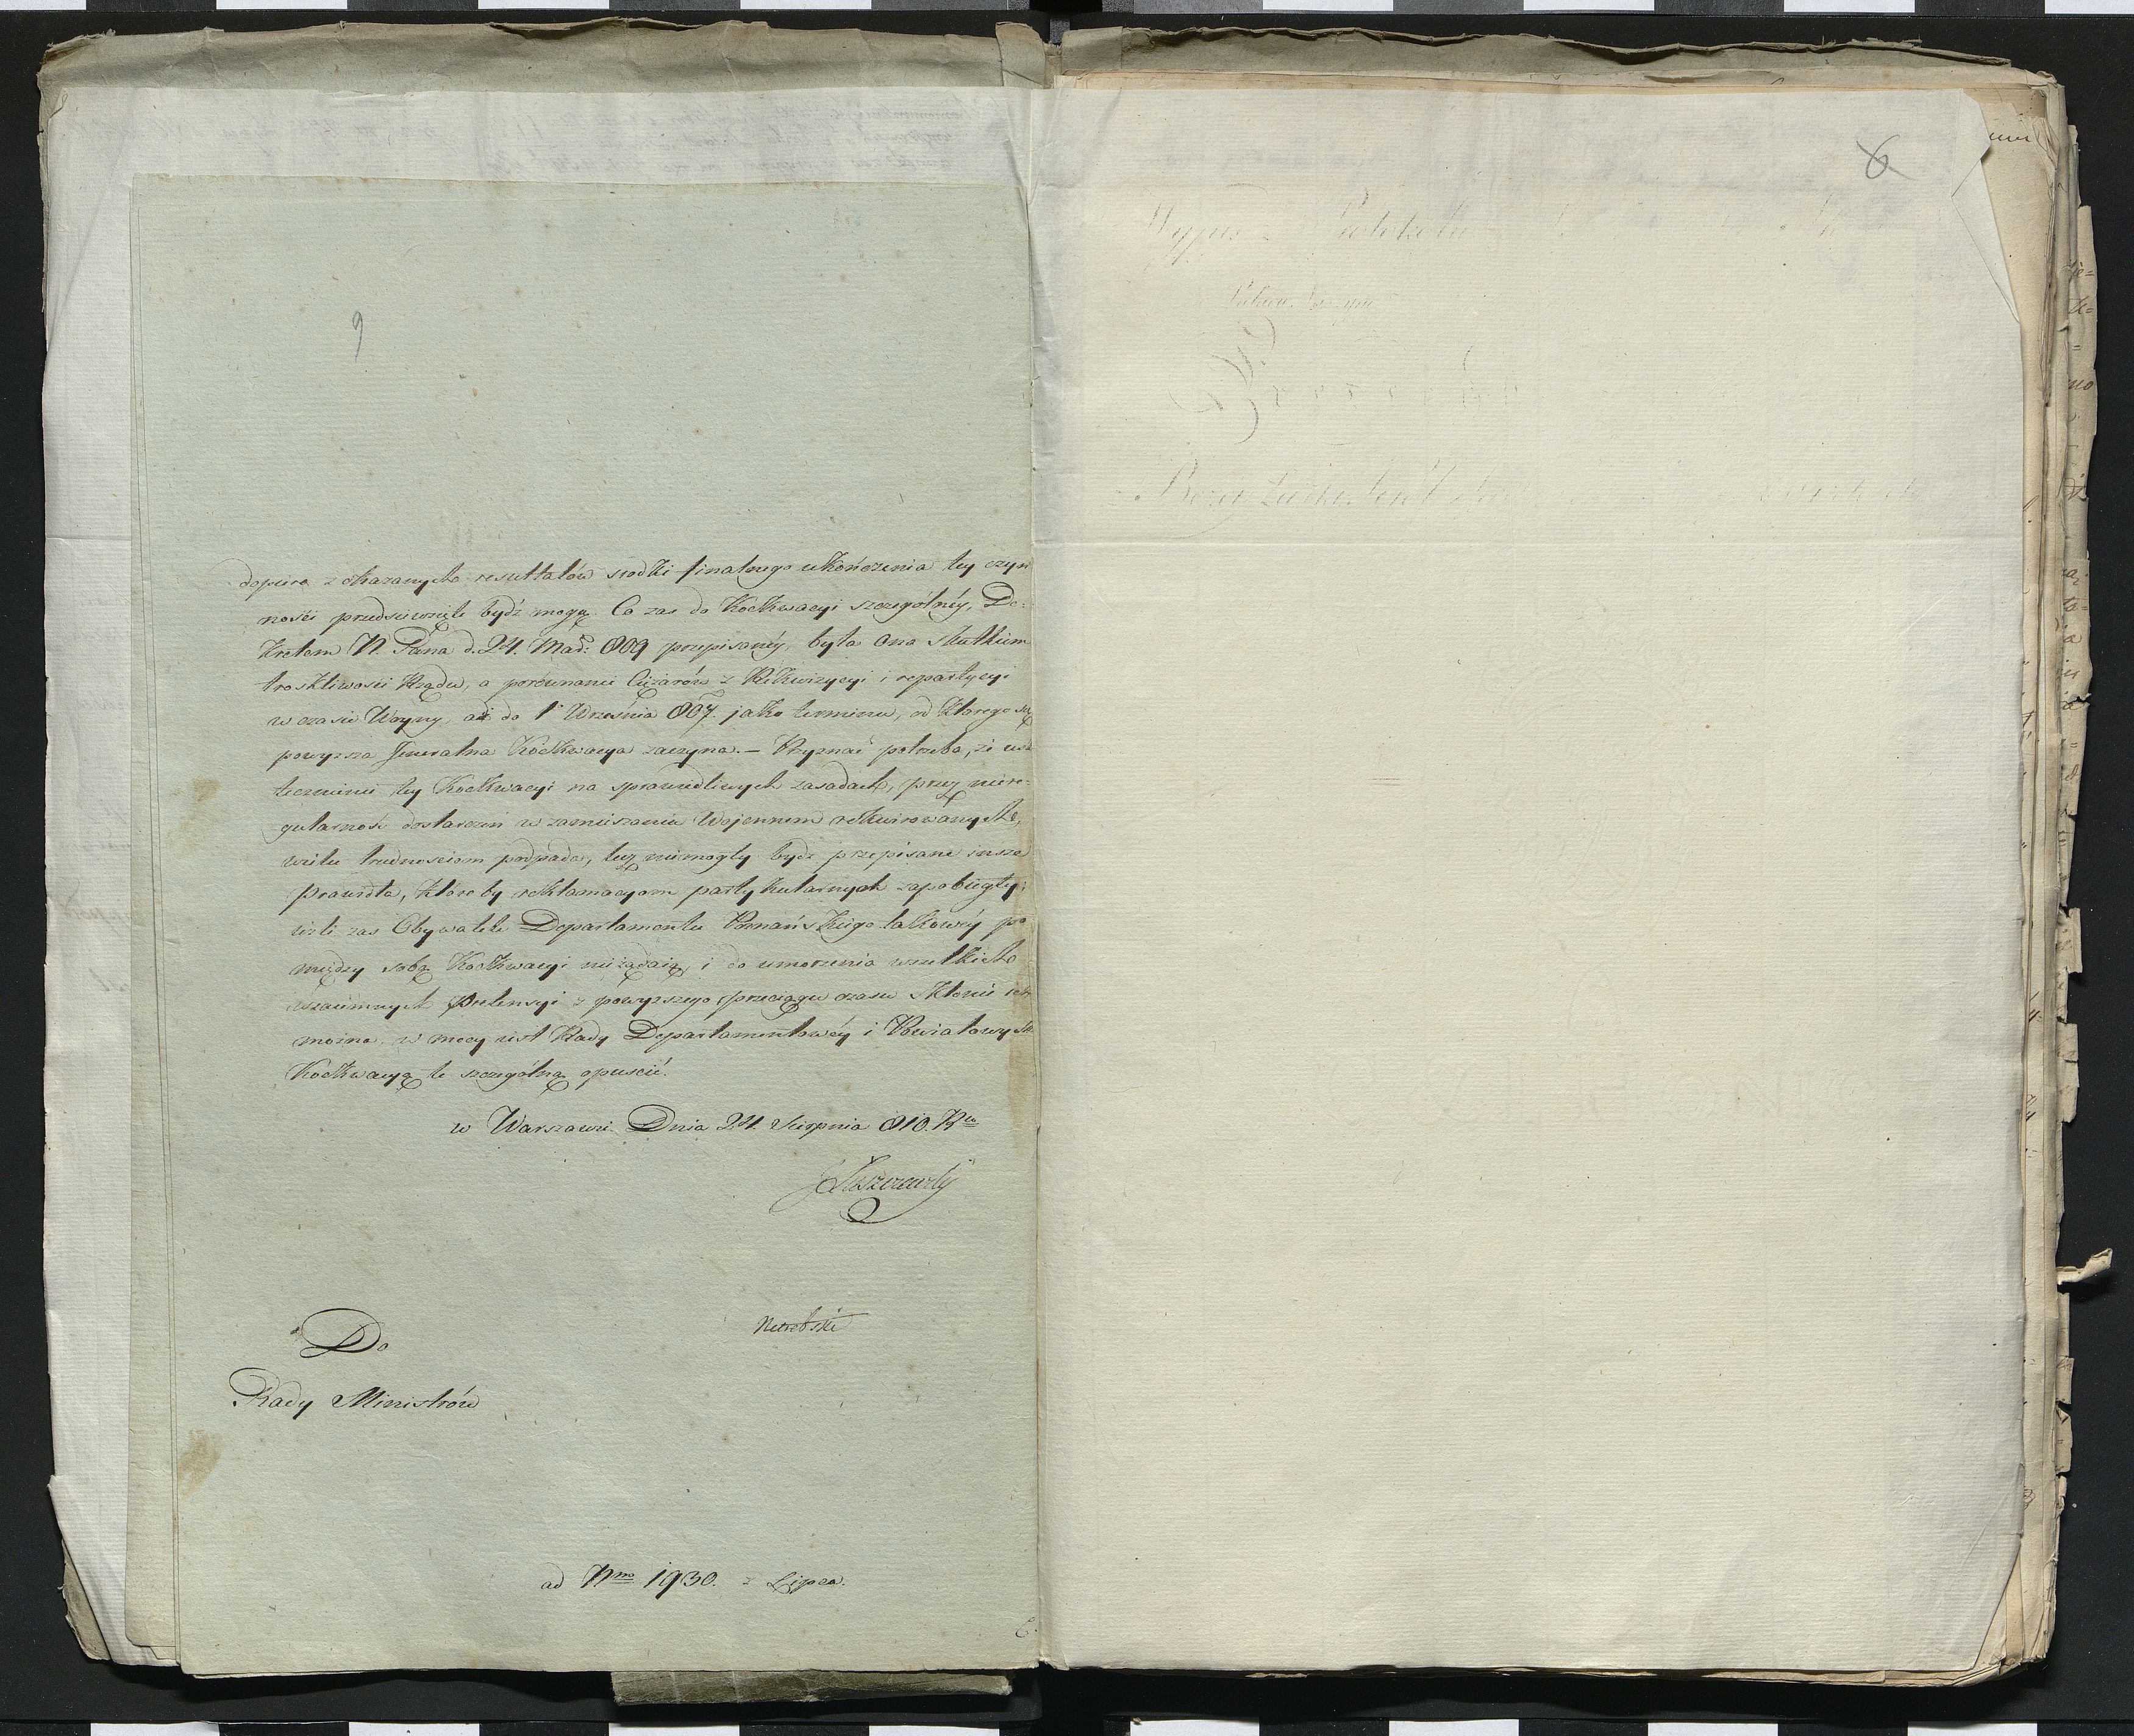 9
dopiero z okazanych resultatów srodki finalnego ukończenia tey czyn
ności przedsięwzięte bydź mogą. Co zas do Koekwacyi szczególnéy, De=
kretem N. Pana d. 24. Mar. 809 przepisanéy, była ona skutkiem
troskliwosci Rządu, a porównanie Ciężarów z Rekwizycyi i repartycyi
w czasie Woyny, aż do 1 Września 807. jako terminu, od ktorego się
powyzsza Jeneralna Koekwacya zaczyna. – Przyznać potrzeba, że usku
tecznienie tey Koekwacyi na sprawiedliwych zasadach, przy niere=
gularnosci dostarczeń w zamieszaniu Wojennem rekwirowanych,
wielu trudnosciom podpada, lecz niemogły bydź przepisane insze
prawidła, któreby reklamacyom partykularnych zapobiegły;
ieżli zas Obywatele Departamentu Poznańskiego takowéy po
między sobą Koekwacyi nieżądaią, i do umorzenia wszelkich
wzaiemnych Pretensyi z powyzszego przeciągu czasu skłonić ich
można, w mocy iest Rady Departamentowéy i Powiatowych
Koekwacyą tę szczególną opuscić.
w Warszawie Dnia 24. Sierpnia 810. Ru
JŁuszczewski
Do
Rady Ministrów
ad Nro 1930. z Lipca.
6